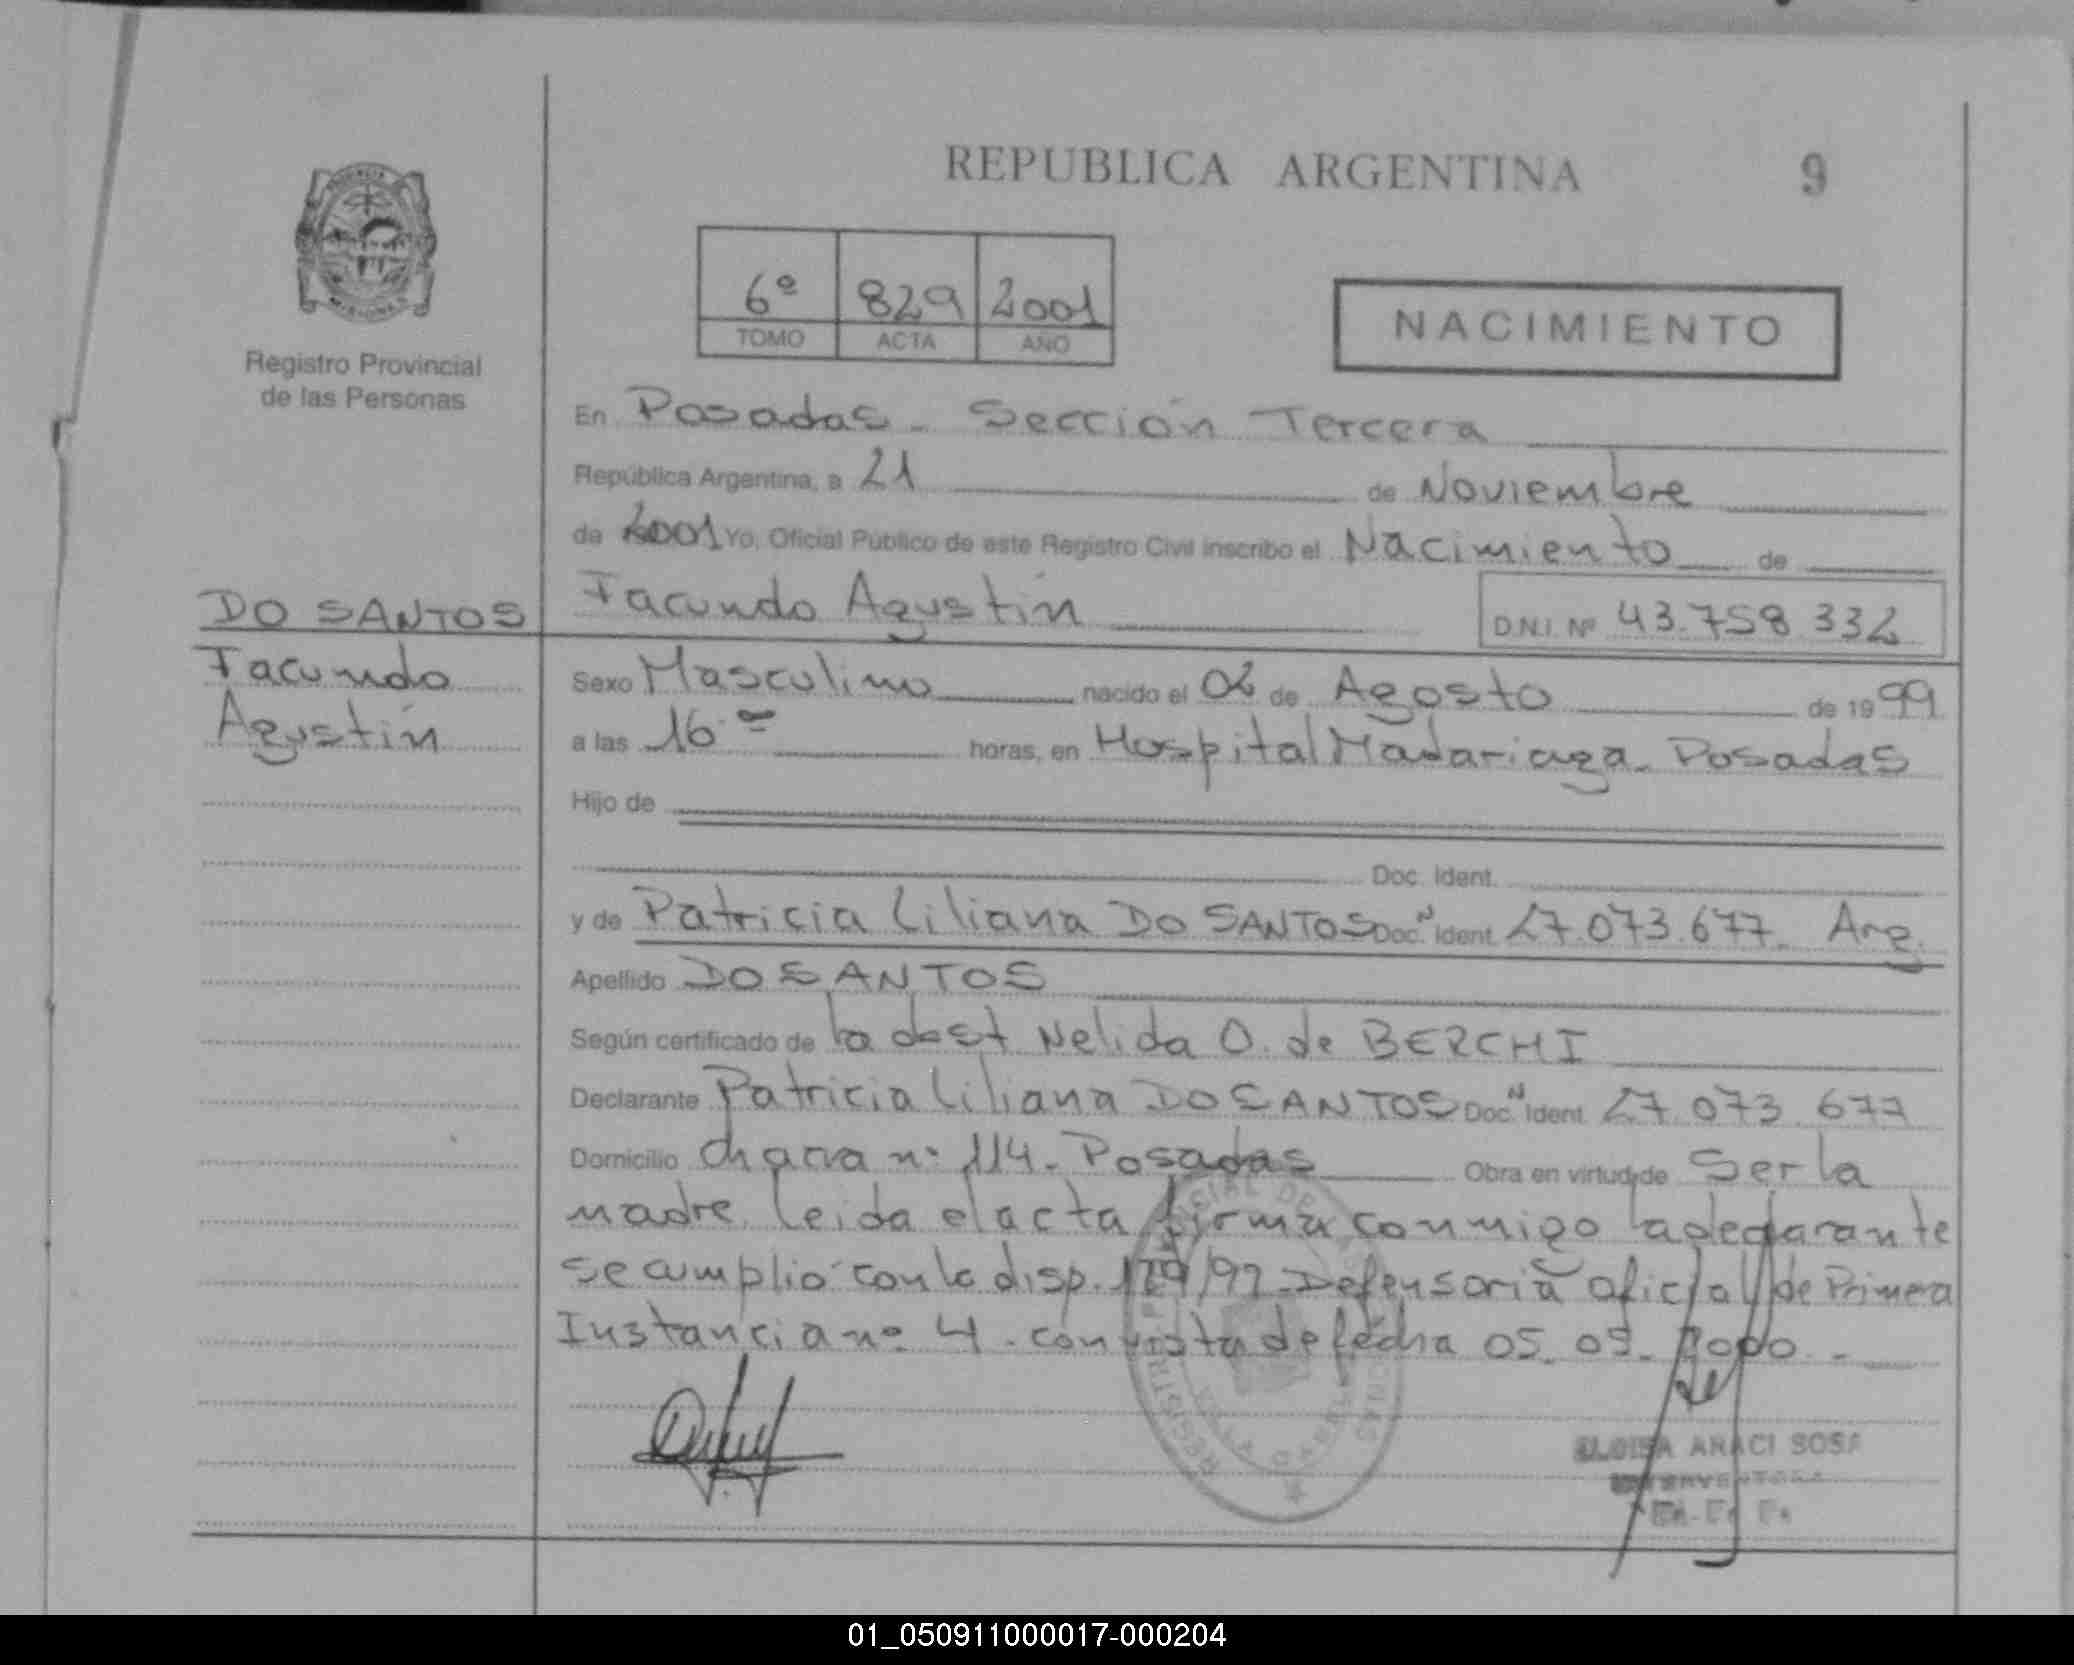 REPUBLICA ARGENTINA
9
6º 829 2001
TOMO ACTA AÑO
NACIMIENTO
Registro Provincial
de las Personas
En Posadas - Sección Tercera
República Argentina, a 21 de Noviembre
de 2001 Yo, Oficial Público de este Registro Civil inscribo el Nacimiento de
Facundo Agustín D.N.I. Nº 43.758.332
DO SANTOS
Facundo
Agustín
Sexo Masculino nacido el 02 de Agosto de 1999
a las 16 horas, en Hospital Madariaga - Posadas
Hijo de
Doc. Ident.
y de Patricia Liliana DO SANTOS Doc. N Ident. 27.073.677 - Arg.
Apellido DO SANTOS
Según certificado de la obst Nelida O. de BERCHI
Declarante Patricia Liliana DO SANTOS Doc. N Ident. 27.073.677
Domicilio chacra nº 114 - Posadas Obra en virtud de Ser la
madre. Leida el acta firma conmigo la declarante
se cumplió con la disp. /97 - Defensoria Oficial de Primera
Instancia nº 4 - con vista de fecha 05.09.2000 -
ELOISA ARACI SOSA
INTERVENTORA
REGISTRO PROVINCIAL DE LAS PERSONAS
VILLA CABELLO
01_050911000017-000204